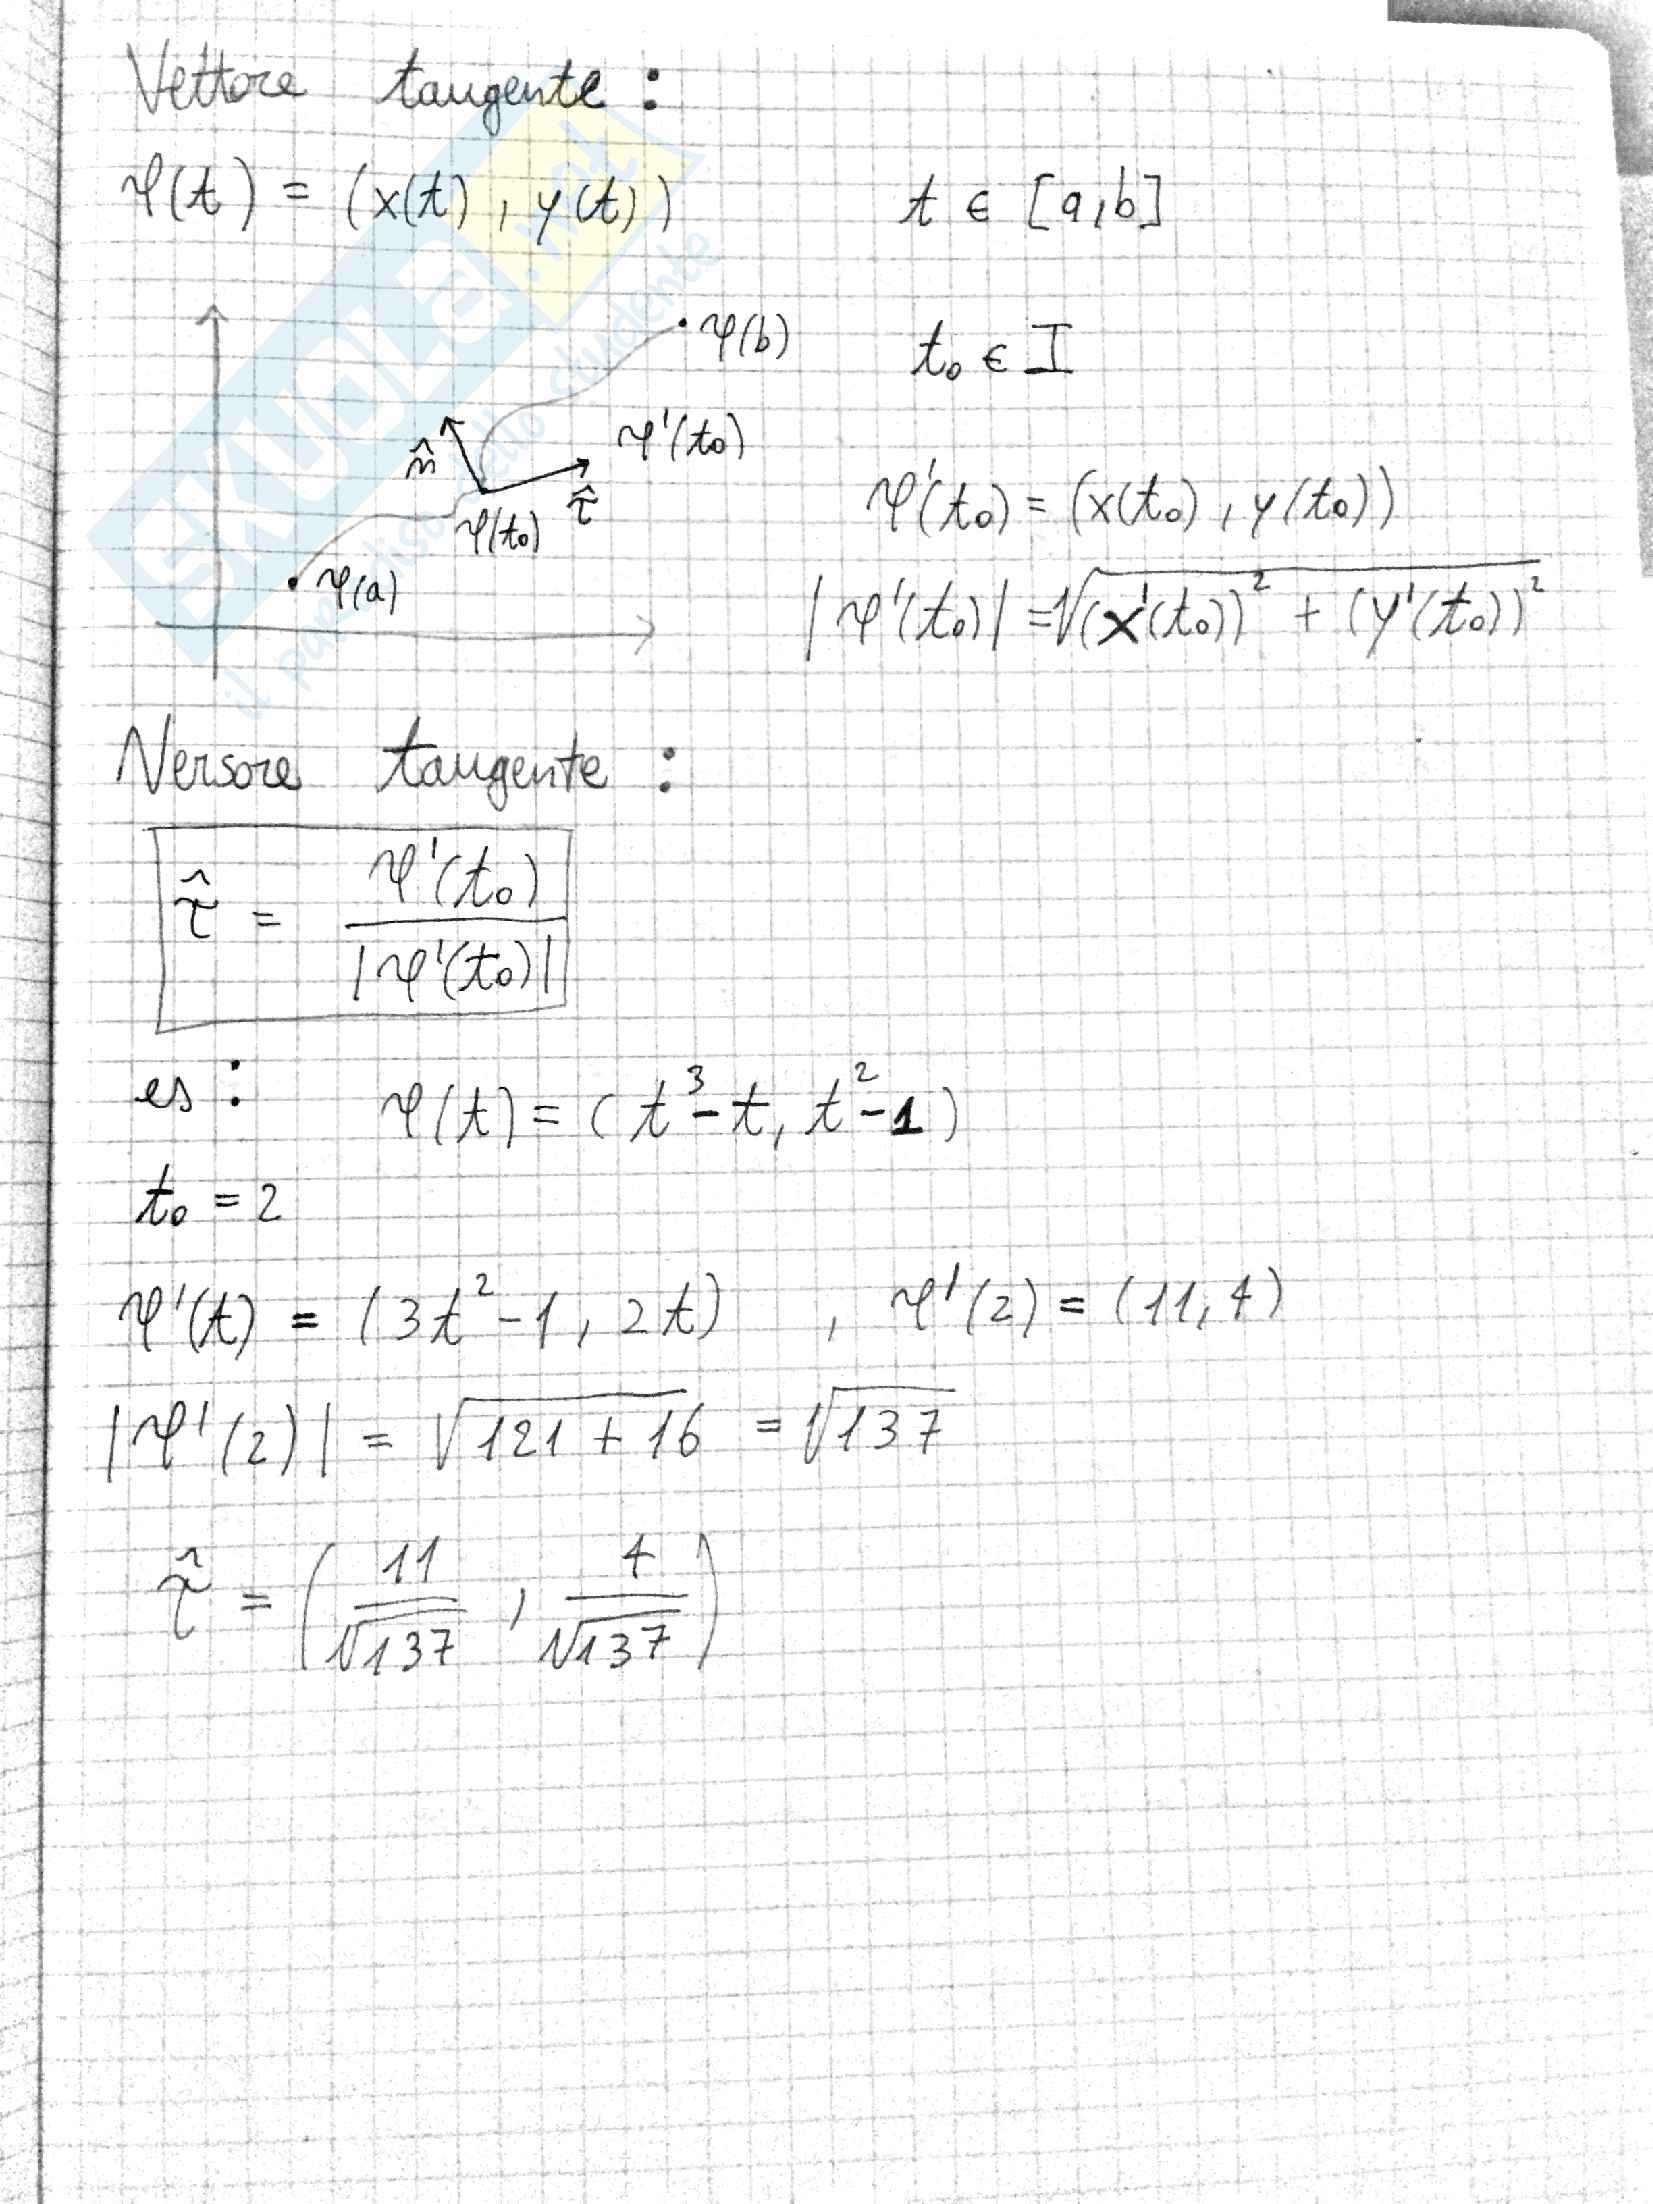 Vettore tangente :
φ(t) = (x(t) , y(t)) t ∈ [a,b]
φ(b)
t₀ ∈ I
φ'(t₀)
n̂
τ̂
φ(t₀)
φ'(t₀) = (x(t₀) , y(t₀))
φ(a)
|φ'(t₀)| = √((x'(t₀))² + (y'(t₀))²)
Versore tangente :
τ̂ = φ'(t₀) / |φ'(t₀)|
es : φ(t) = (t³-t, t²-1)
t₀ = 2
φ'(t) = (3t²-1, 2t) , φ'(2) = (11,4)
|φ'(2)| = √(121 + 16) = √137
τ̂ = (11/√137 , 4/√137)
SKUOLA.net
il paradiso dello studente